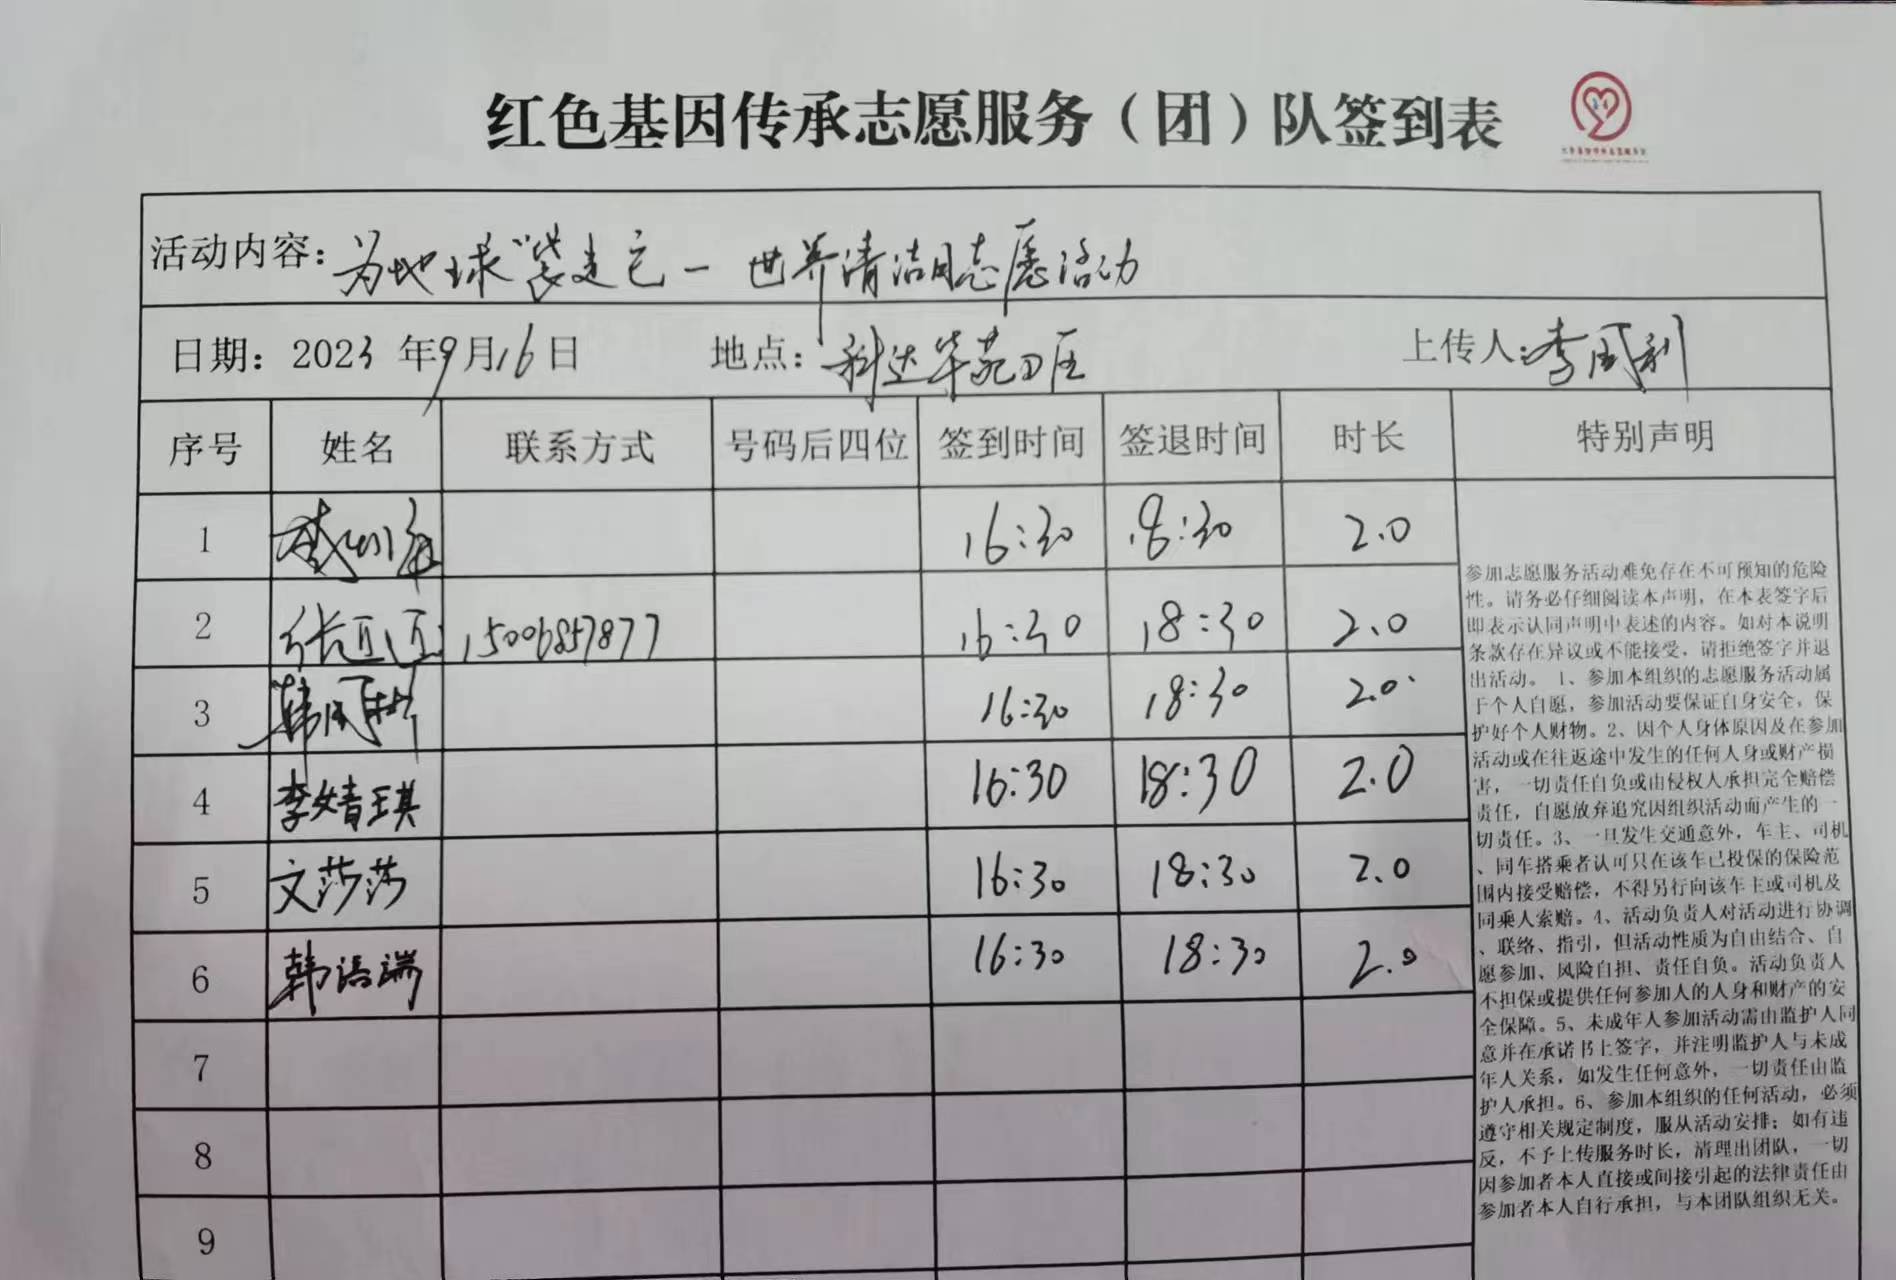 红色基因传承志愿服务（团）队签到表
活动内容：为地球"袋走它一世界清洁日志愿活动
日期：2023年9月16日 地点：科达华苑四区 上传人：李风利
序号 姓名 联系方式 号码后四位 签到时间 签退时间 时长 特别声明
1 16:30 18:30 2.0
2 张迎迎 15006857877 16:30 18:30 2.0
3 韩风彬 16:30 18:30 2.0
4 李婧琪 16:30 18:30 2.0
5 文莎莎 16:30 18:30 2.0
6 韩浩端 16:30 18:30 2.0
7
8
9
参加志愿服务活动难免存在不可预知的危险
性。请务必仔细阅读本声明，在本表签字后
即表示认同声明中表述的内容。如对本说明
条款存在异议或不能接受，请拒绝签字并退
出活动。1、参加本组织的志愿服务活动属
于个人自愿，参加活动要保证自身安全，保
护好个人财物。2、因个人身体原因及在参加
活动或在往返途中发生的任何人身或财产损
害，一切责任自负或由侵权人承担完全赔偿
责任，自愿放弃追究因组织活动而产生的一
切责任。3、一旦发生交通意外，车主、司机
、同车搭乘者认可只在该车已投保的保险范
围内接受赔偿，不得另行向该车主或司机及
同乘人索赔。4、活动负责人对活动进行协调
、联络、指引，但活动性质为自由结合、自
愿参加、风险自担、责任自负。活动负责人
不担保或提供任何参加人的人身和财产的安
全保障。5、未成年人参加活动需由监护人同
意并在承诺书上签字，并注明监护人与未成
年人关系，如发生任何意外，一切责任由监
护人承担。6、参加本组织的任何活动，必须
遵守相关规定制度，服从活动安排；如有违
反，不予上传服务时长，清理出团队，一切
因参加者本人直接或间接引起的法律责任由
参加者本人自行承担，与本团队组织无关。